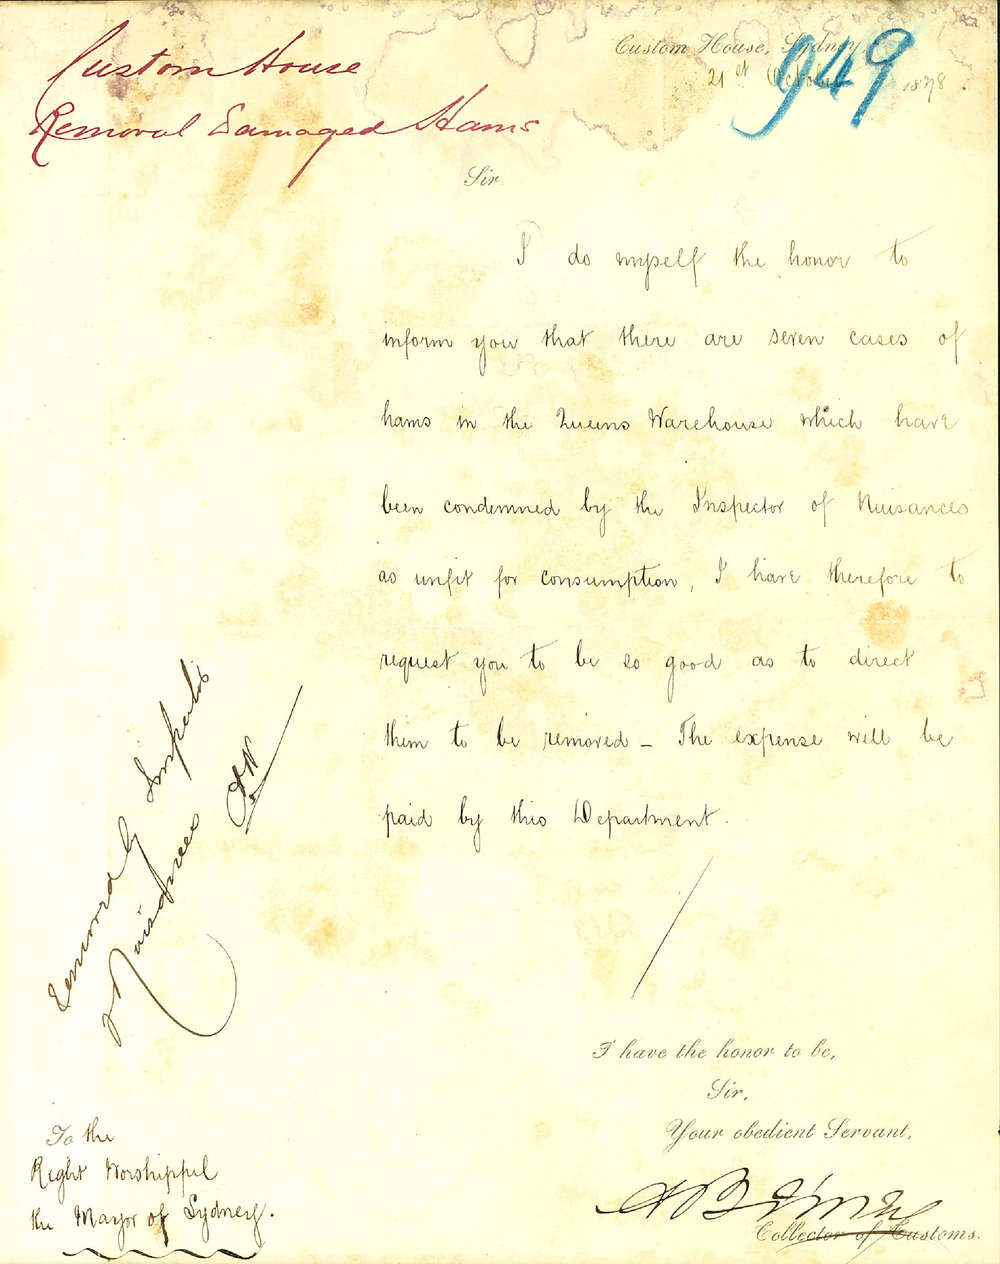 Custom House
Removal Damaged Hams
949
Custom House, Sydney
21st October 1878.
Sir
I do myself the honor to
inform you that there are seven cases of
hams in the Queens Warehouse which have
been condemned by the Inspector of Nuisances
as unfit for consumption, I have therefore to
request you to be so good as to direct
them to be removed – The expense will be
paid by this Department.
I have the honor to be,
Sir,
Your obedient Servant,
Collector of Customs.
To the
Right Worshipful
the Mayor of Sydney.
Nuisances